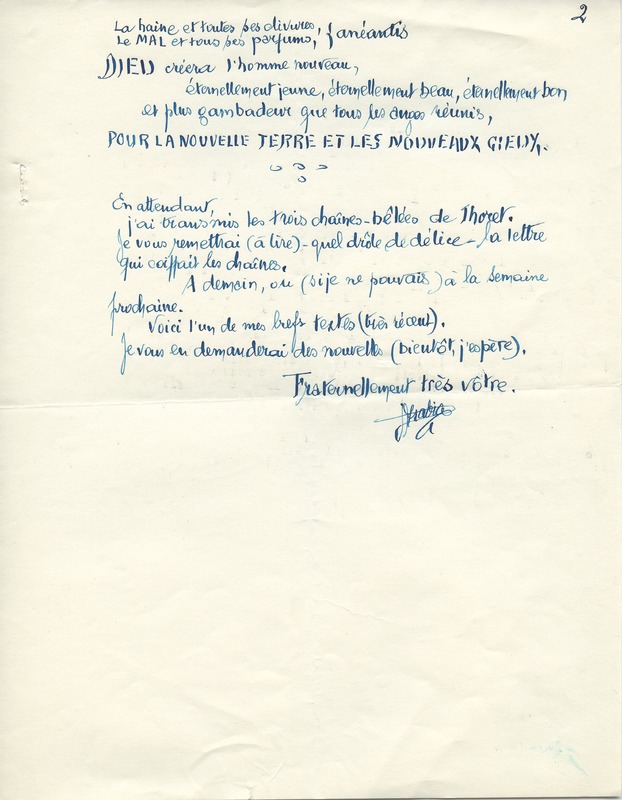 2
La haine et toutes ses divures,
Le MAL et tous ses parfums, } anéantis
DIEU créera l'homme nouveau,
éternellement jeune, éternellement beau, éternellement bon
et plus gambadeur que tous les anges réunis,
POUR LA NOUVELLE TERRE ET LES NOUVEAUX CIEUX.
En attendant,
j'ai transmis les trois chaînes-bêlées de Thozet.
Je vous remettrai (à lire) - quel drôle de délice - la lettre
qui coiffait les chaînes.
A demain, ou (si je ne pouvais) à la semaine
prochaine.
Voici l'un de mes brefs textes (très récent).
Je vous en demanderai des nouvelles (bientôt, j'espère).
Fraternellement très vôtre.